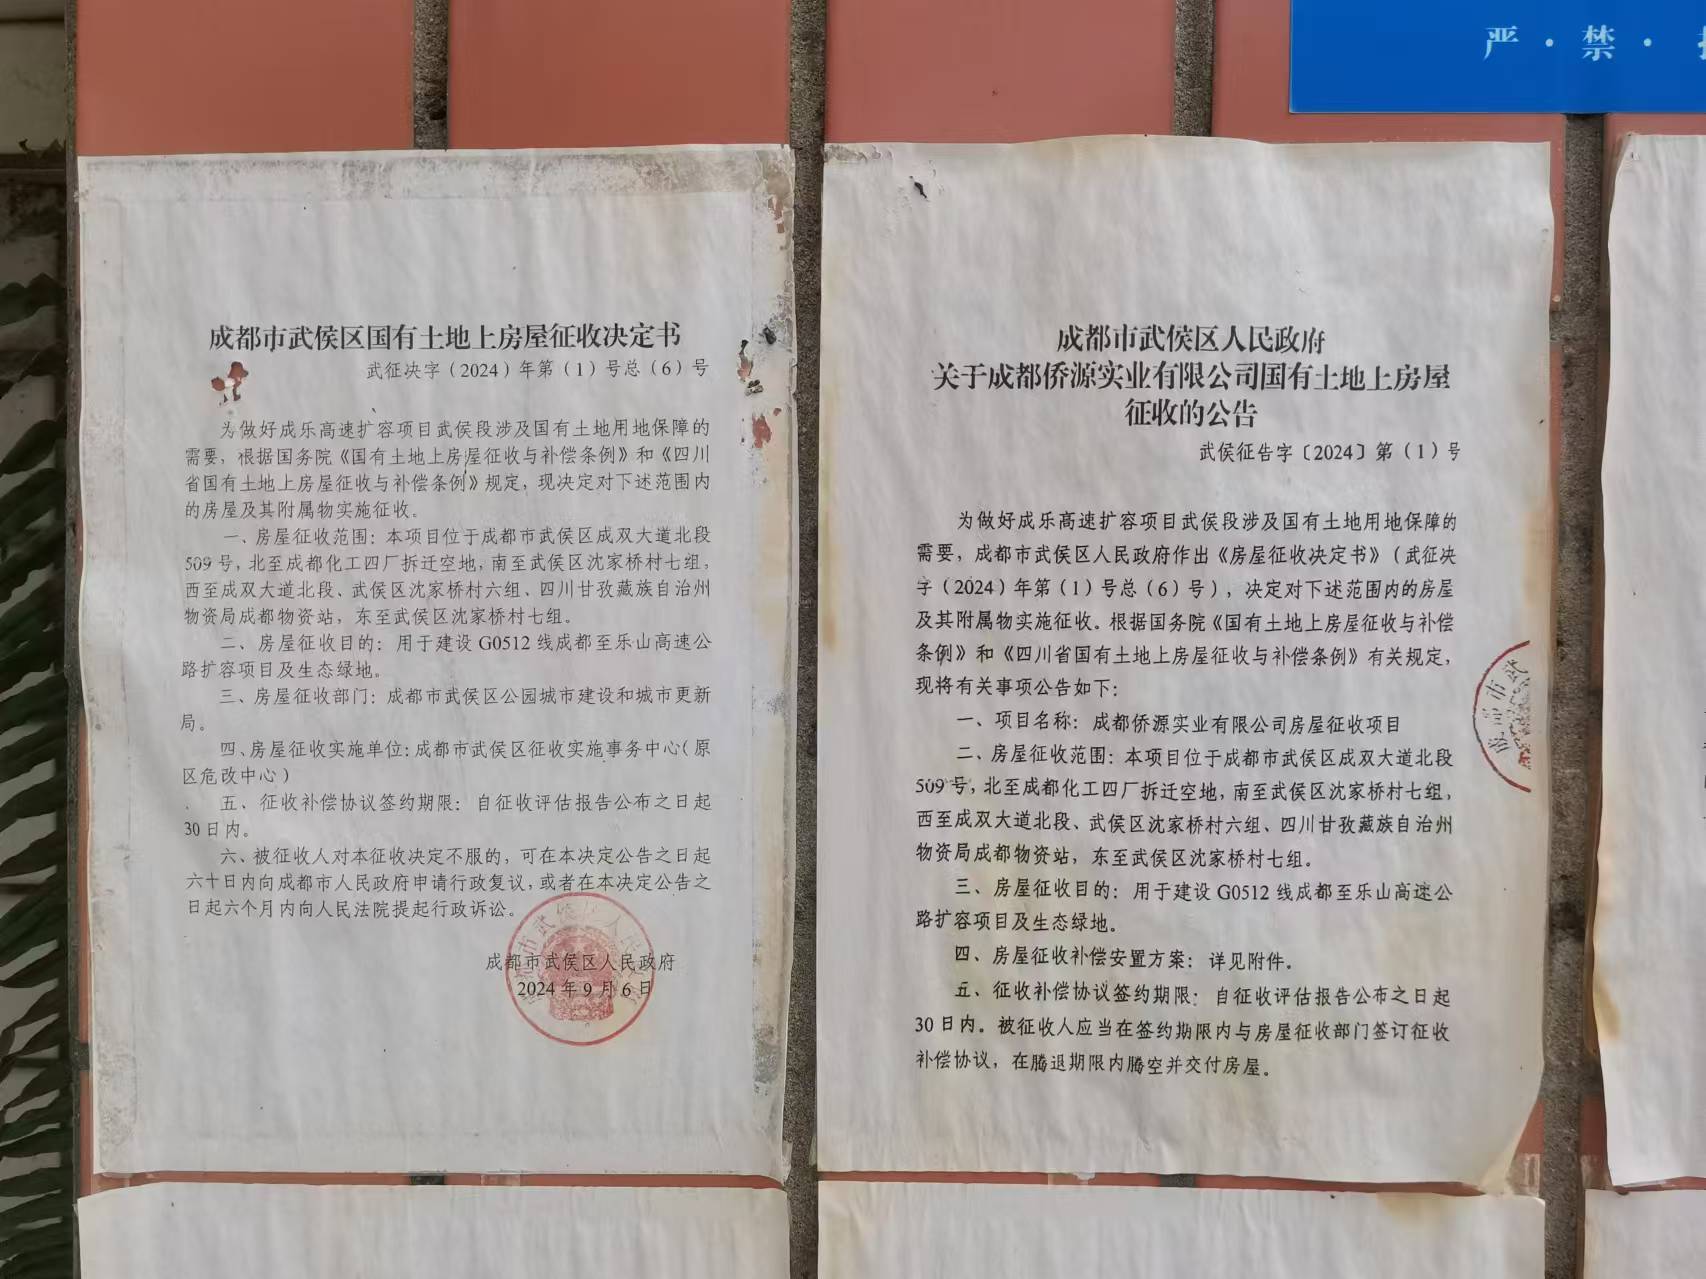 严·禁·
成都市武侯区国有土地上房屋征收决定书
武征决字（2024）年第（1）号总（6）号
为做好成乐高速扩容项目武侯段涉及国有土地用地保障的
需要，根据国务院《国有土地上房屋征收与补偿条例》和《四川
省国有土地上房屋征收与补偿条例》规定，现决定对下述范围内
的房屋及其附属物实施征收。
一、房屋征收范围：本项目位于成都市武侯区成双大道北段
509号，北至成都化工四厂拆迁空地，南至武侯区沈家桥村七组，
西至成双大道北段、武侯区沈家桥村六组、四川甘孜藏族自治州
物资局成都物资站，东至武侯区沈家桥村七组。
二、房屋征收目的：用于建设 G0512 线成都至乐山高速公
路扩容项目及生态绿地。
三、房屋征收部门：成都市武侯区公园城市建设和城市更新
局。
四、房屋征收实施单位：成都市武侯区征收实施事务中心（原
区危改中心）
五、征收补偿协议签约期限：自征收评估报告公布之日起
30日内。
六、被征收人对本征收决定不服的，可在本决定公告之日起
六十日内向成都市人民政府申请行政复议，或者在本决定公告之
日起六个月内向人民法院提起行政诉讼。
成都市武侯区人民政府
2024年9月6日
成都市武侯区人民政府
关于成都侨源实业有限公司国有土地上房屋
征收的公告
武侯征告字〔2024〕第（1）号
为做好成乐高速扩容项目武侯段涉及国有土地用地保障的
需要，成都市武侯区人民政府作出《房屋征收决定书》（武征决
字（2024）年第（1）号总（6）号），决定对下述范围内的房屋
及其附属物实施征收。根据国务院《国有土地上房屋征收与补偿
条例》和《四川省国有土地上房屋征收与补偿条例》有关规定，
现将有关事项公告如下：
一、项目名称：成都侨源实业有限公司房屋征收项目
二、房屋征收范围：本项目位于成都市武侯区成双大道北段
509号，北至成都化工四厂拆迁空地，南至武侯区沈家桥村七组，
西至成双大道北段、武侯区沈家桥村六组、四川甘孜藏族自治州
物资局成都物资站，东至武侯区沈家桥村七组。
三、房屋征收目的：用于建设 G0512 线成都至乐山高速公
路扩容项目及生态绿地。
四、房屋征收补偿安置方案：详见附件。
五、征收补偿协议签约期限：自征收评估报告公布之日起
30日内。被征收人应当在签约期限内与房屋征收部门签订征收
补偿协议，在腾退期限内腾空并交付房屋。